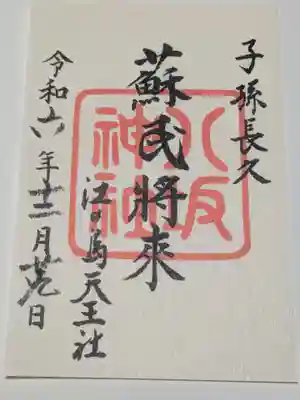 子孫長久
蘇民將來
八坂
神社
江の島天王社
令和六年十二月廿九日